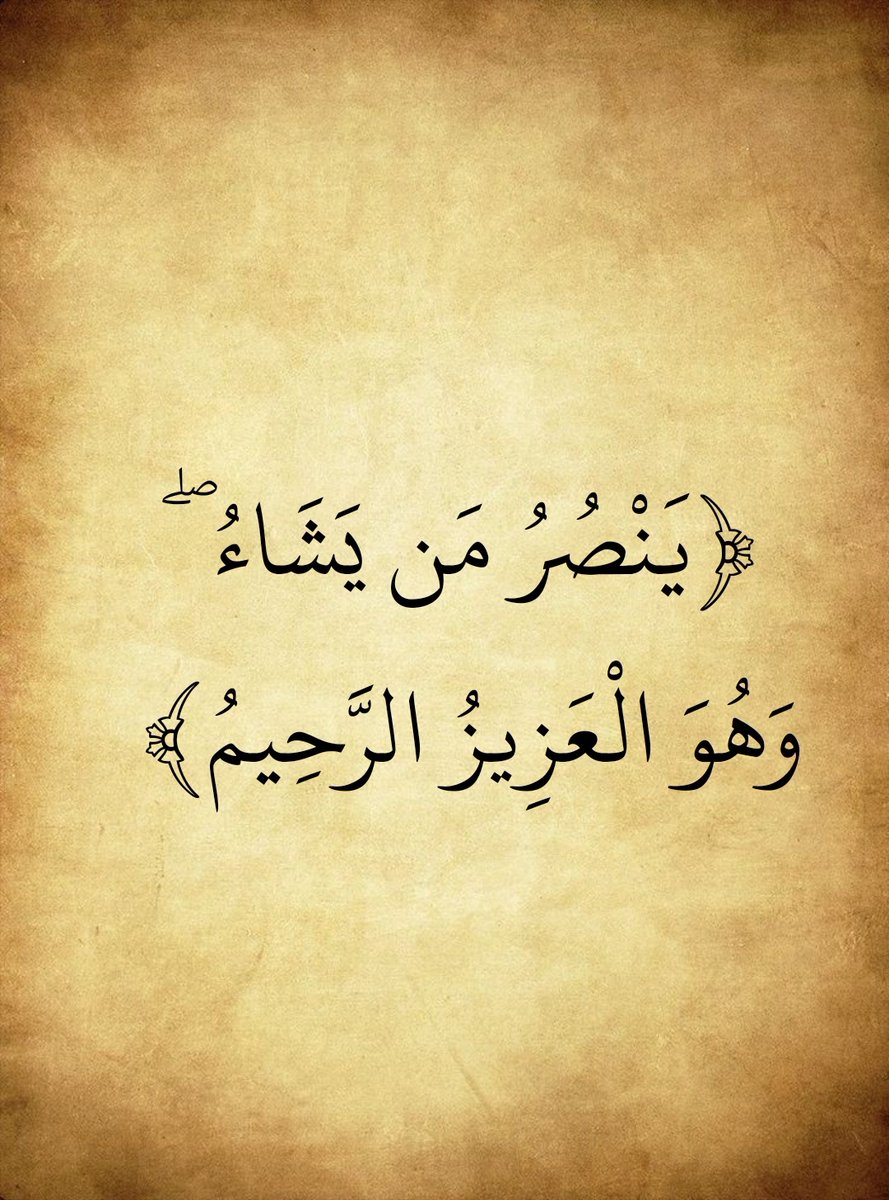 ﴿يَنْصُرُ مَن يَشَاءُ ۖ
وَهُوَ الْعَزِيزُ الرَّحِيمُ﴾